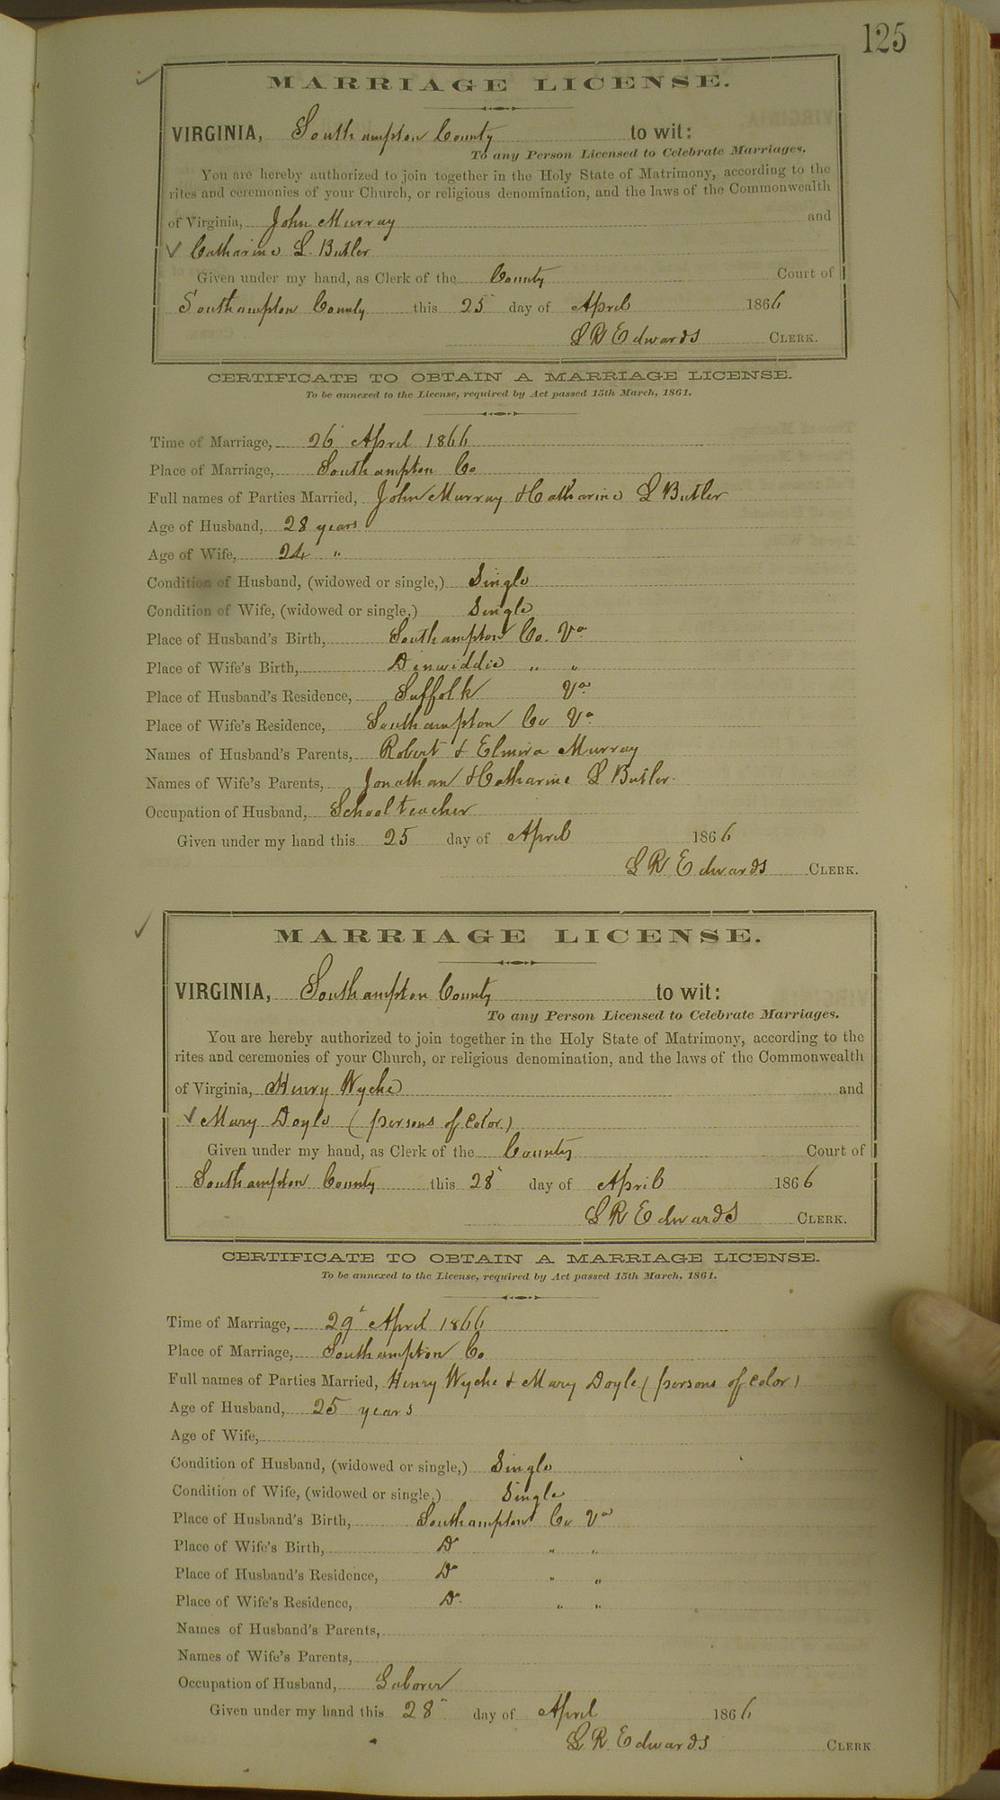 125
MARRIAGE LICENSE.
VIRGINIA, Southampton County to wit:
To any Person Licensed to Celebrate Marriages.
You are hereby authorized to join together in the Holy State of Matrimony, according to the
rites and ceremonies of your Church, or religious denomination, and the laws of the Commonwealth
of Virginia, John Murray and
Catharine L. Butler
Given under my hand, as Clerk of the County Court of
Southampton County this 25 day of April 1866
L R Edwards CLERK.
CERTIFICATE TO OBTAIN A MARRIAGE LICENSE.
To be annexed to the License, required by Act passed 15th March, 1861.
Time of Marriage, 26 April 1866
Place of Marriage, Southampton Co
Full names of Parties Married, John Murray & Catharine L Butler
Age of Husband, 28 years
Age of Wife, 24 "
Condition of Husband, (widowed or single,) Single
Condition of Wife, (widowed or single,) Single
Place of Husband's Birth, Southampton Co. Va
Place of Wife's Birth, Dinwiddie " "
Place of Husband's Residence, Suffolk Va
Place of Wife's Residence, Southampton Co Va
Names of Husband's Parents, Robert & Elmira Murray
Names of Wife's Parents, Jonathan & Catharine L Butler
Occupation of Husband, School teacher
Given under my hand this 25 day of April 1866
L R Edwards CLERK.
MARRIAGE LICENSE.
VIRGINIA, Southampton County to wit:
To any Person Licensed to Celebrate Marriages.
You are hereby authorized to join together in the Holy State of Matrimony, according to the
rites and ceremonies of your Church, or religious denomination, and the laws of the Commonwealth
of Virginia, Henry Wyche and
Mary Doyle (persons of Color)
Given under my hand, as Clerk of the County Court of
Southampton County this 28 day of April 1866
L R Edwards CLERK.
CERTIFICATE TO OBTAIN A MARRIAGE LICENSE.
To be annexed to the License, required by Act passed 15th March, 1861.
Time of Marriage, 29 April 1866
Place of Marriage, Southampton Co
Full names of Parties Married, Henry Wyche & Mary Doyle (persons of Color)
Age of Husband, 25 years
Age of Wife,
Condition of Husband, (widowed or single,) Single
Condition of Wife, (widowed or single,) Single
Place of Husband's Birth, Southampton Co Va
Place of Wife's Birth, Do " "
Place of Husband's Residence, Do " "
Place of Wife's Residence, Do " "
Names of Husband's Parents,
Names of Wife's Parents,
Occupation of Husband, Laborer
Given under my hand this 28 day of April 1866
L R Edwards CLERK